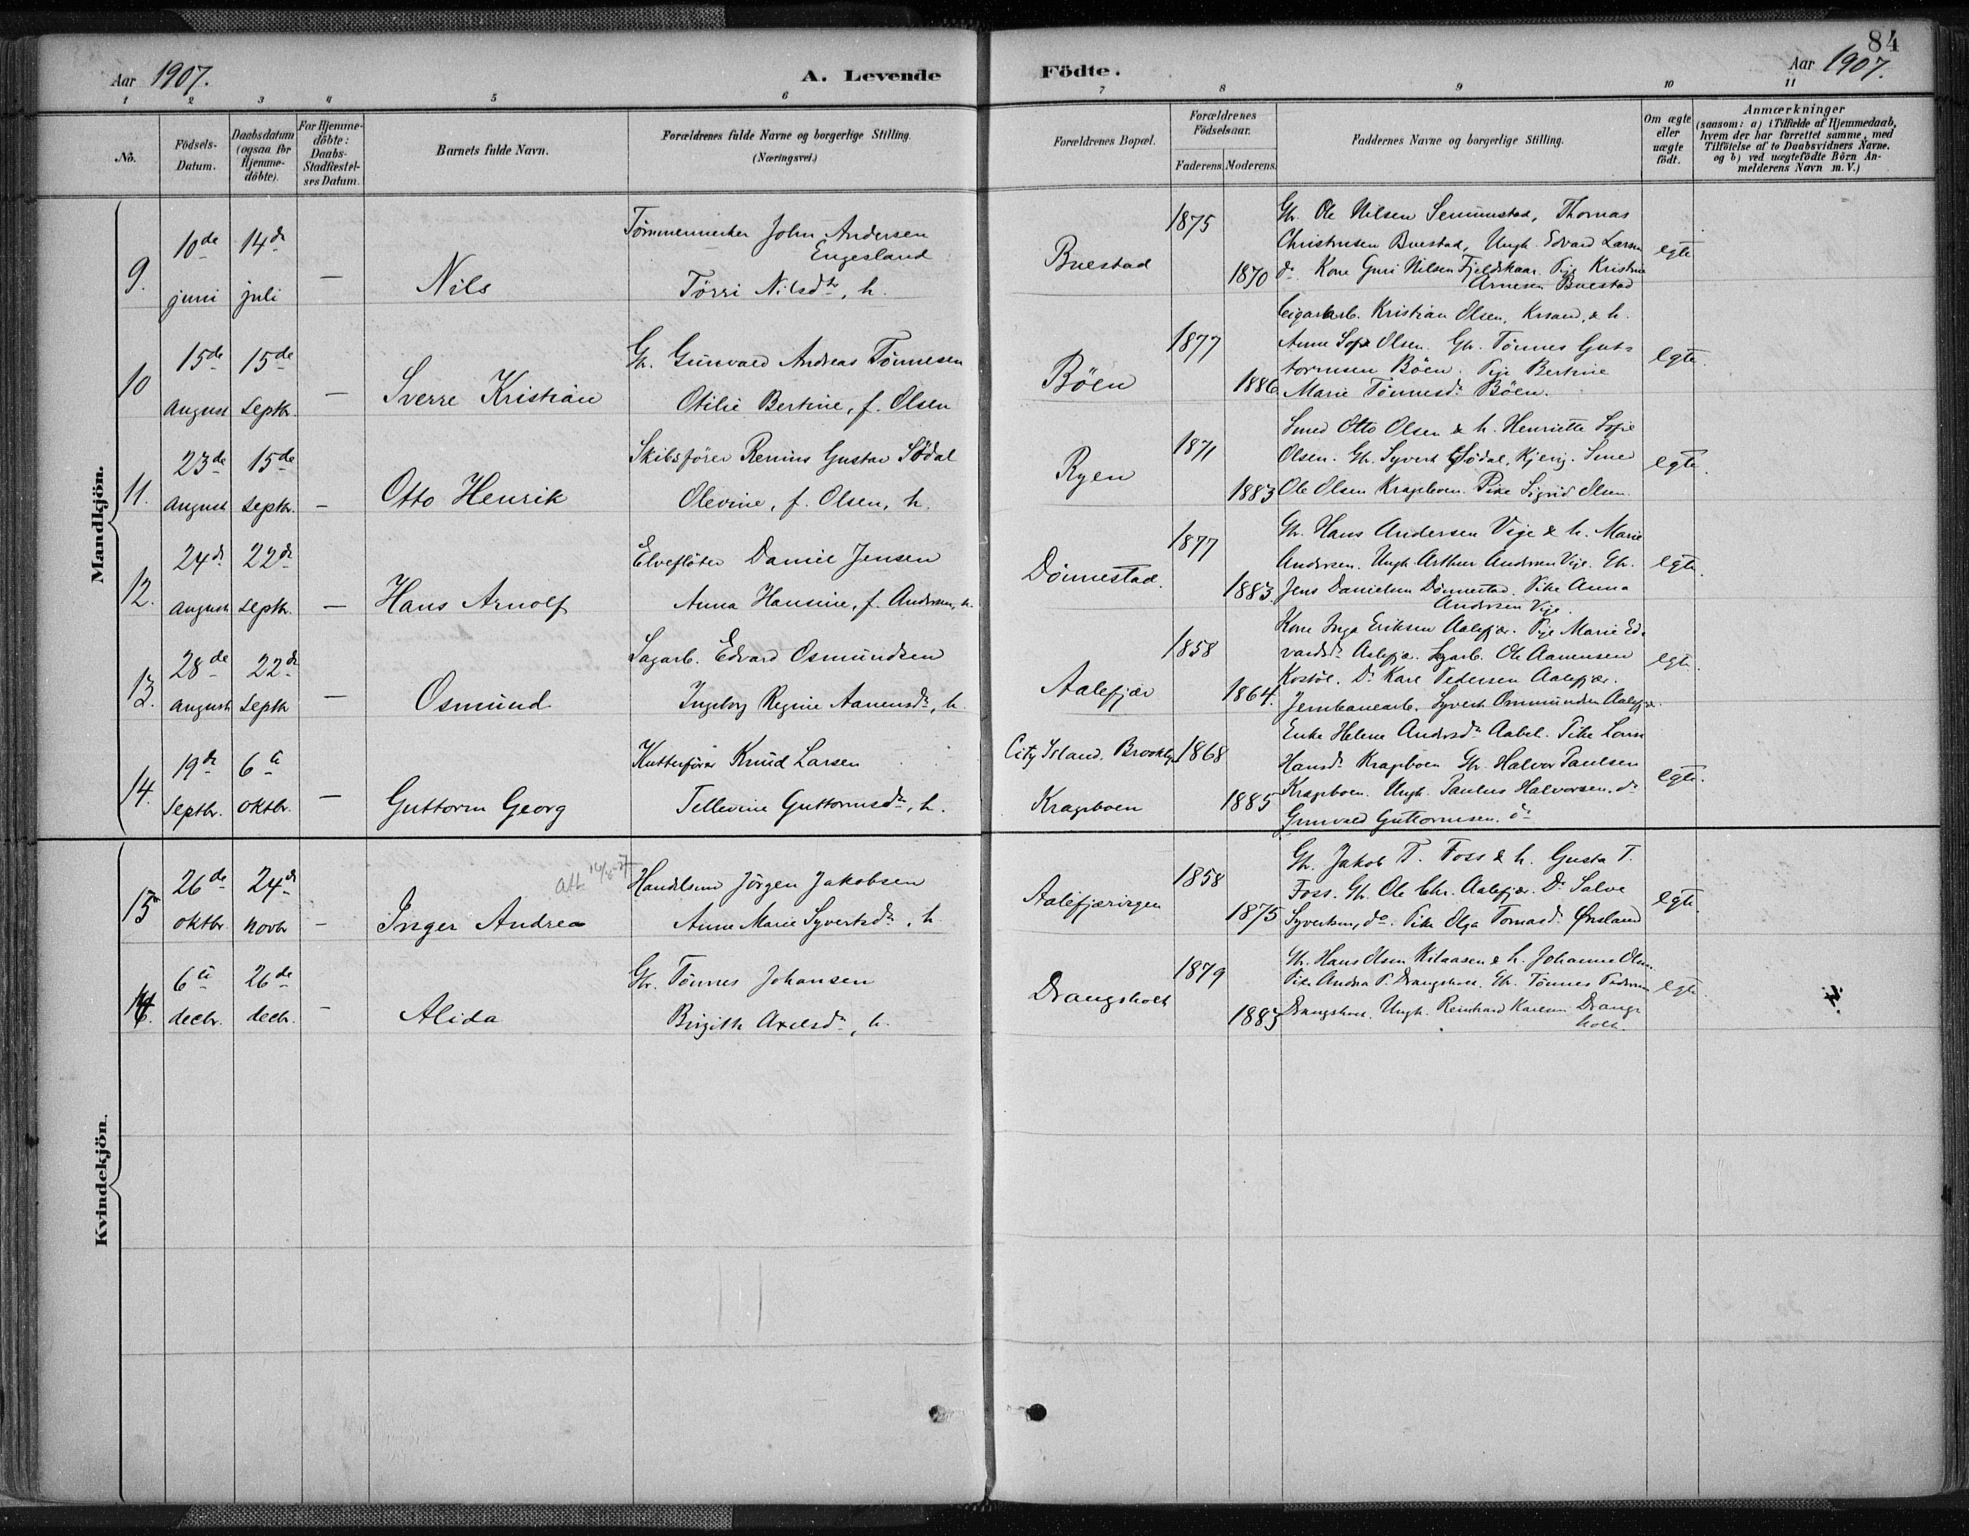 84
Aar 1907.
A. Levende
Födte.
Aar 1907.
1 2 3 4 5 6 7 8 9 10 11
No.
Födsels-
Datum.
Daabsdatum
(ogsaa for
Hjemme-
döbte).
For Hjemme-
döbte:
Daabs-
Stadfæstel-
ses Datum.
Barnets fulde Navn.
Forældrenes fulde Navne og borgerlige Stilling.
(Næringsvei.)
Forældrenes Bopæl.
Forældrenes
Födselsaar.
Faderens. Moderens.
Faddernes Navne og borgerlige Stilling.
Om ægte
eller
uægte
födt.
Anmærkninger
(saasom: a) i Tilfælde af Hjemmedaab,
hvem der har forrettet samme, med
Tilföielse af to Daabsvidners Navne.
og b) ved uægtefödte Börn An-
melderens Navn m. V.)
Mandkjön.
9.
10de juni
14de juli
—
Nils
John Andersen
Engesland
Tørri Nilsdtr, h.
Buestad
1875
1870
Gbr. Ole Nilsen Thomas
Christensen Buestad, Ungk. Edvard Larsen
do. Kone Guri Nilsen Fjeldskaar. Pige Kristine
Arnesen Buestad
egte
10
15de august
15de septbr.
—
Sverre Kristian
Gbr. Gunvald Andreas Tønnesen
Otilie Bertine, f. Olsen
Böen
1877
1886
Cigararb. Kristian Olsen, Krsand, & h.
Anne Sofie Olsen. Gbr. Tønnes Gut-
tormsen Böen. Pige Bertine
Marie Tönnesdr Böen.
egte.
11.
23de august
15de septbr.
—
Otto Henrik
Skibsfører Gustav Södal
Olevine, f. Olsen, h.
Ryen
1871
1883
Smed Otto Olsen & h. Henriette Sofie
Olsen. Gbr. Syvert Södal, Smed
Ole Olsen Krageboen. Pike Sigrid Olsen
egte.
12.
24de august
22de septbr.
—
Hans Arnolf
Elvefløter Daniel Jensen
Anna Hansine, f. Andersen, h.
Dönnestad.
1877
1883.
Gbr. Hans Andersen Vige & h. Marie
Andersen. Ungk. Arthur Andersen Vige. Gbr.
Jens Danielsen Dönnestad. Pike Anna
Andersen Vige.
egte.
13.
28de august
22de septbr
—
Osmund
Sagarb. Edvard Osmundsen
Ingeborg Regine Aanensdr, h.
Aalefjær
1858
1864.
Kone Inga Eriksen Aalefjær. Pige Marie Ed-
vardsdr Aalefjær. Sagarb. Ole Aanensen
Kostöl. Do Karl Pedersen Aalefjær.
Jernbanearb. Syvert Ommundsen Aalefjær.
egte.
14.
19de Septbr.
6te oktbr.
—
Guttorm Georg
Kutterfører Knud Larsen
Tellevine Guttormsdr, h.
City Island. Brooklyn
Krageboen
1868
1885
Enke Helene Andersdr Aabel. Pike
Hansdr Krageboen Gbr. Halvor Paulsen
Krageboen. Ungk. Paulus Halvorsen. do
Gunvald Guttormsen. do
egte.
Kvindekjön.
15
26de oktbr.
24de novbr
—
Inger Andrea
Att.
Jørgen Jakobsen
Anne Marie Syvertsdr, h.
1858
1875
Gbr. Jakob T. Foss & h. Gusta T.
Foss. Gbr. Ole Chr. Aalefjær. Do Salve
Syvertsen, do. Pike Olga Tomasdr Ønsland
egte.
16.
6te decbr.
26de decbr.
—
Alida
Gbr. Tønnes Johansen
Birgith Axelsdr, h.
Drangsholt
1879
1883
Gbr. Hans Olsen & h. Johanne Olsen.
Pike Andrea P. Drangsholt. Gbr. Tønnes Pedersen
Drangsholt. Ungk. Reinhard Karlsen Drangs-
holt.
egte.